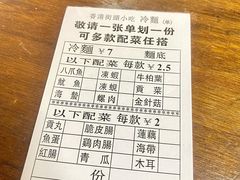 香港街頭小吃 冷麵(單)
敬请一张单划一份
可多款配菜任搭
冷麵 ¥7 麵底
以下配菜 每款 ¥2.5
八爪魚 凍蝦 牛柏葉
魷魚 凍蜆 貢丸
海蜇 螺肉 金針菇
以下配菜 每款 ¥2
貢丸 脆皮腸 蓮藕
魚蛋 鷄肉腸 海帶
紅腸 青瓜 木耳
份